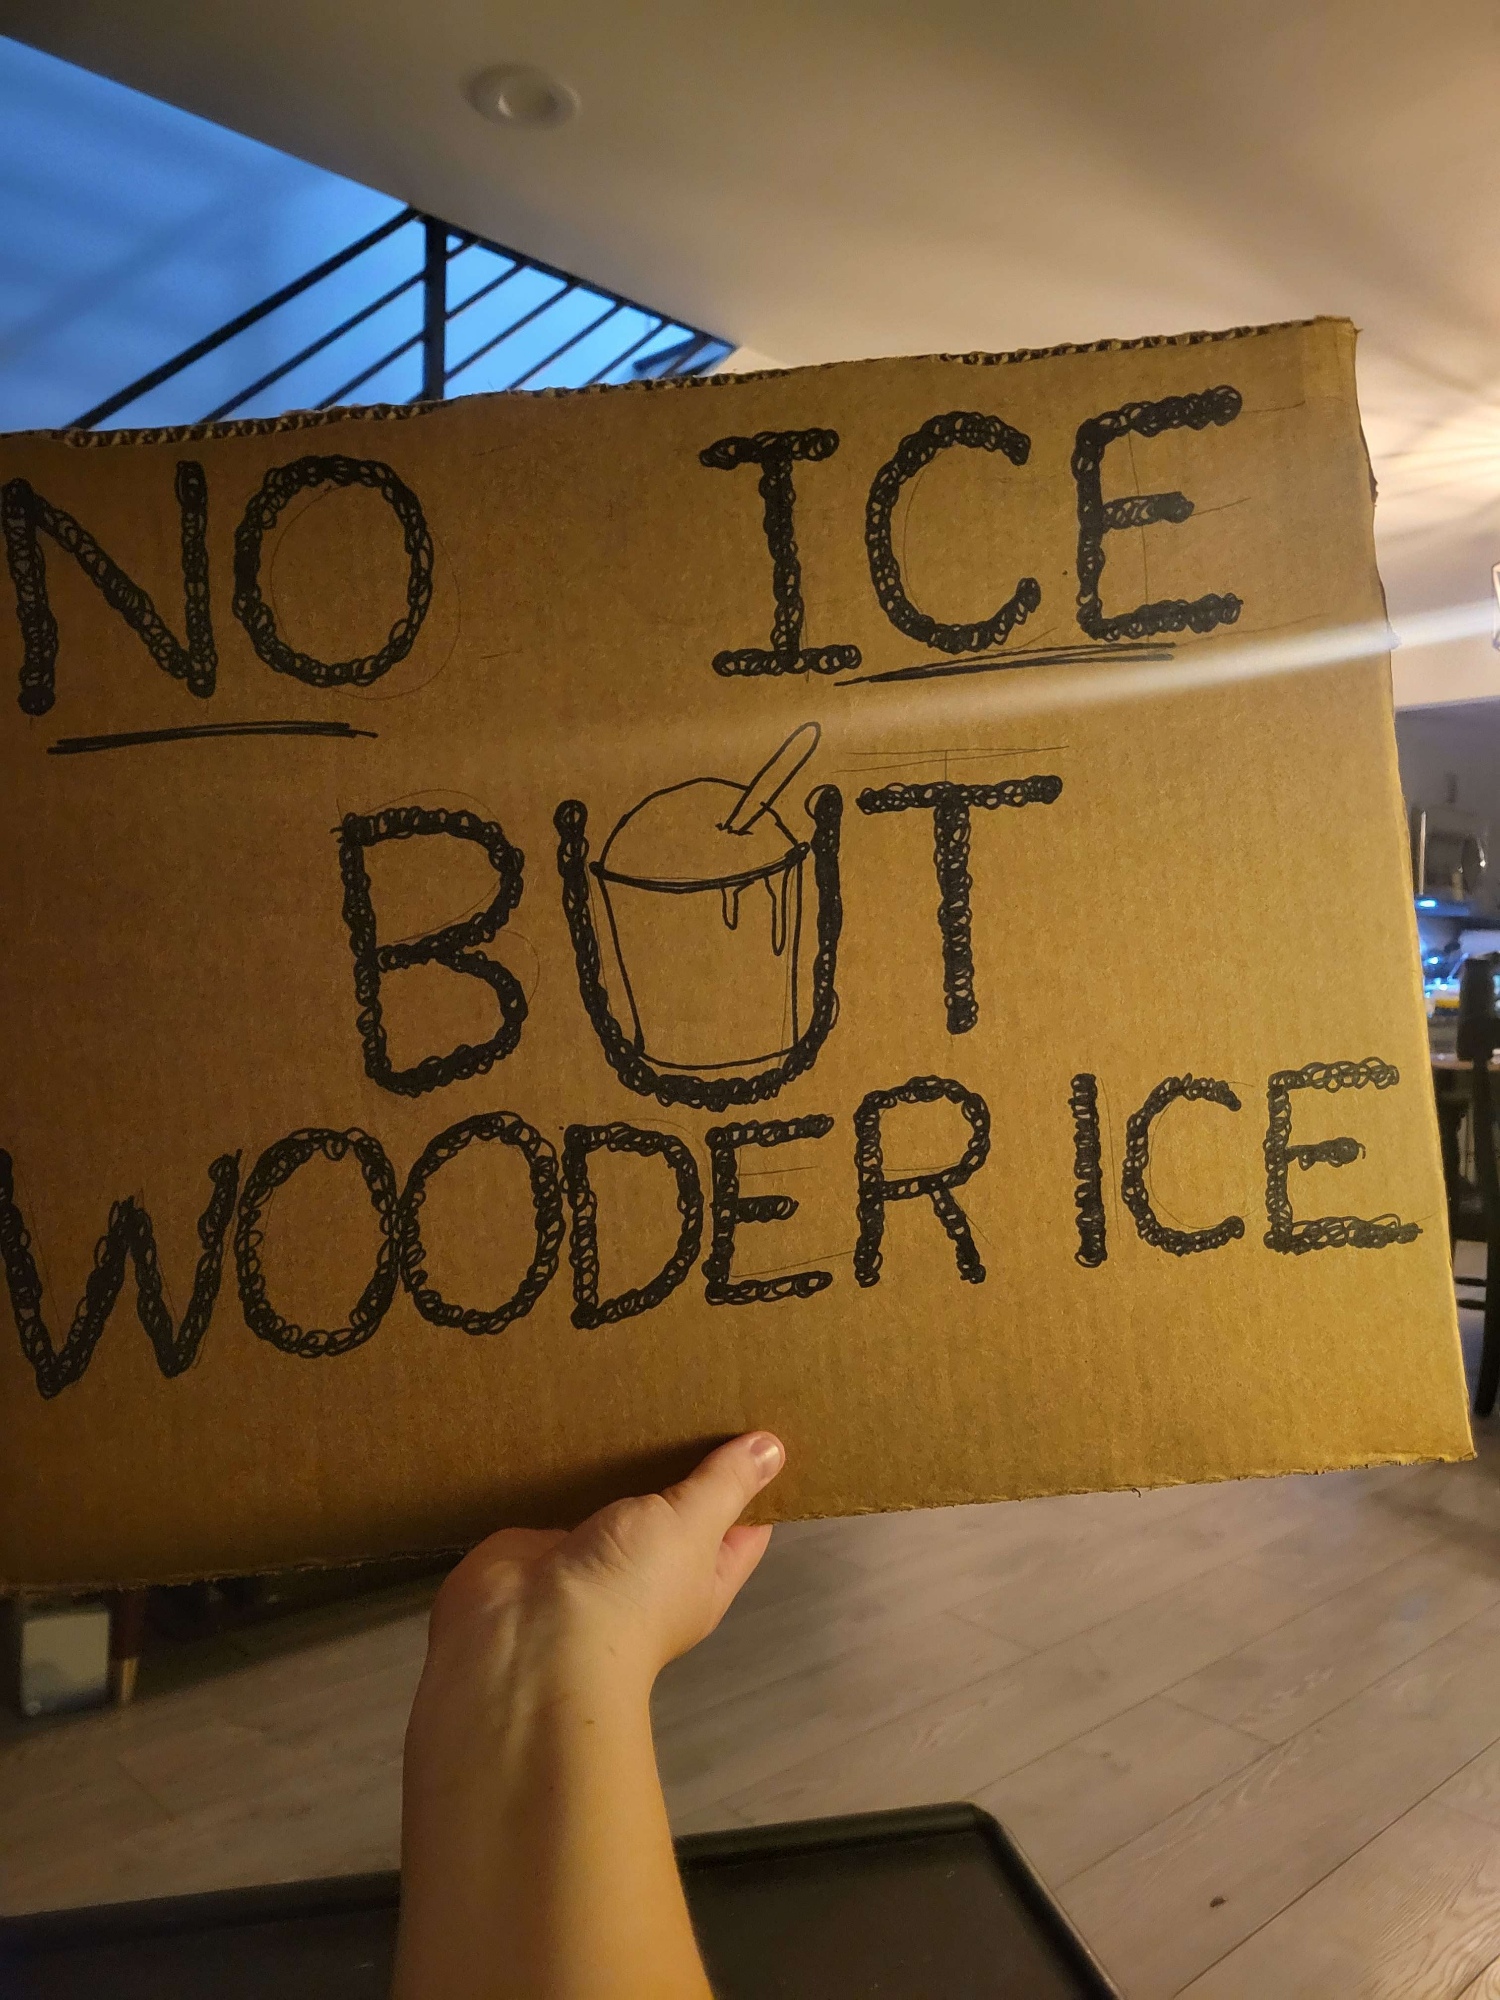 NO ICE
BUT
WOODER ICE